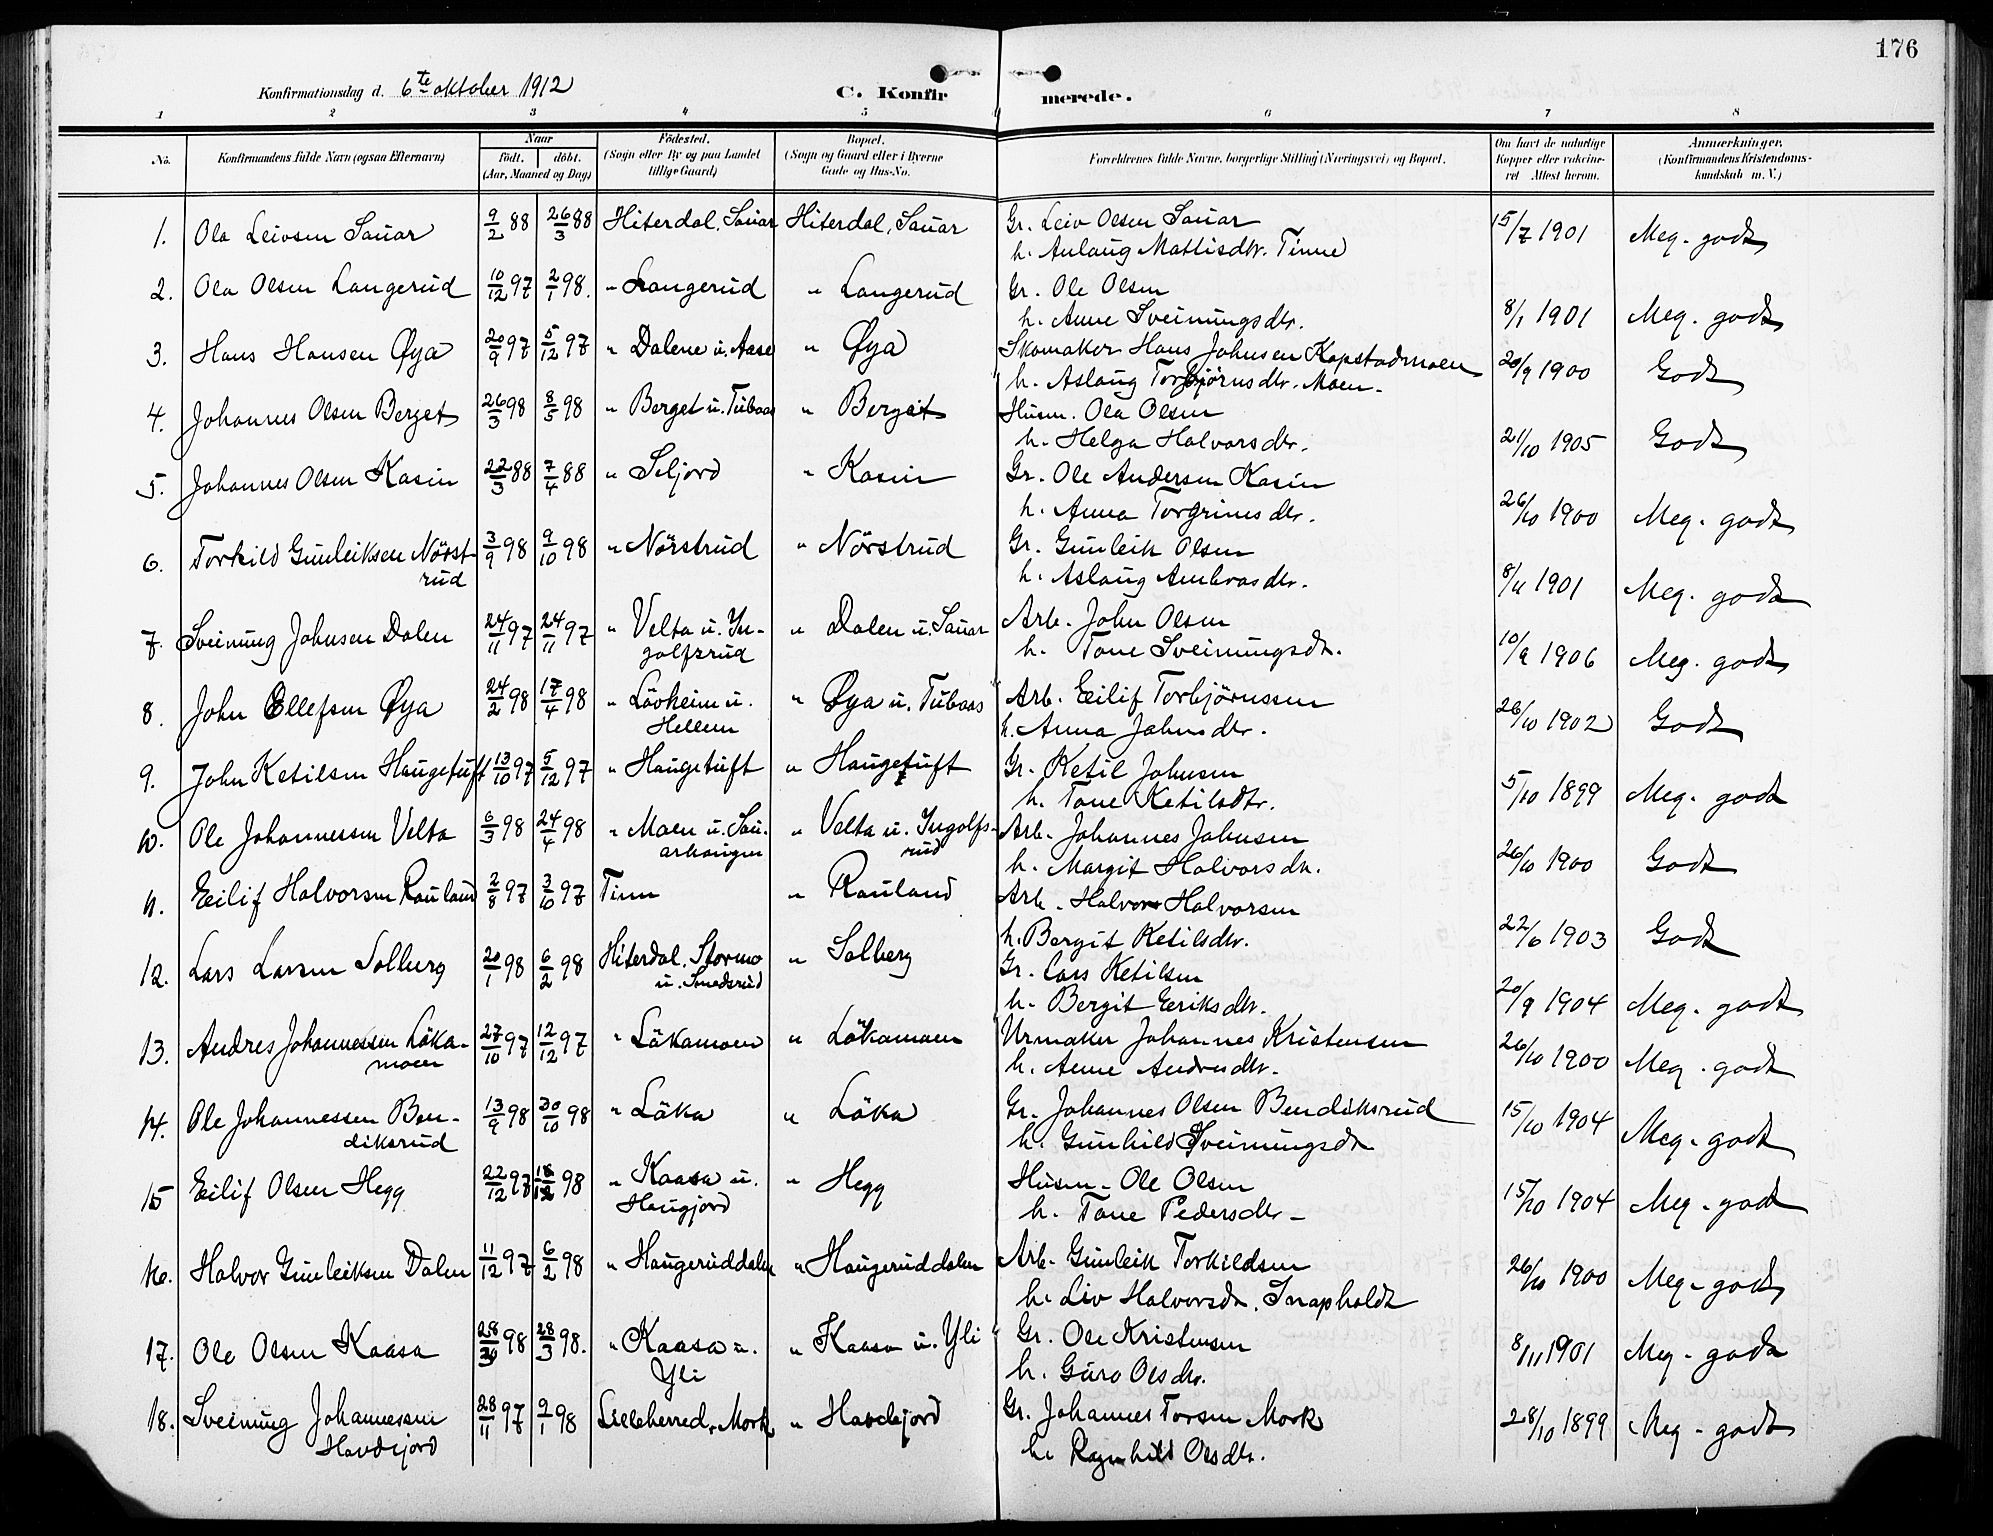 176
Konfirmationsdag d. 6te oktober 1912
C. Konfirmerede.
1 2 3 4 5 6 7 8
No. Konfirmandens fulde Navn (ogsaa Efternavn) Naar født. døbt. (Aar, Maaned og Dag) Födested. (Sogn eller By og paa Landet tillige Gaard) Bopæl. (Sogn og Gaard eller i Byerne Gade og Hus-No. Forældrenes fulde Navne, borgerlige Stilling (Næringsvei) og Bopæl. Om havt de naturlige Kopper eller vakcineret Attest herom. Anmærkninger. (Konfirmandens Kristendomskundskab m. V.)
1. Ola Leivsen Sauar 9/2 88 26/3 88 Hiterdal, Sauar Hiterdal, Sauar Gr. Leiv Olsen Sauar 15/7 1901 Meg. godt
h. Anlaug Mattisdtr. Tinne
2. Ola Olsen Langerud 10/12 97 2/1 98. " Langerud " Langerud Gr. Ole Olsen 8/1 1901 Meg. godt
h. Anne Sveinungsdtr.
3. Hans Hansen Øya 20/9 97 5/12 97 " Dalene u. Aase " Øya Skomaker Hans Johnsen Kopstadmoen 20/9 1900 Godt
h. Aslaug Torbjørnsdtr. Moen.
4. Johannes Olsen Berget 26/3 98 8/5 98 " Berget u. Tubaas " Berget Husm. Ola Olsen 21/10 1905 Godt
h. Helga Halvorsdtr.
5. Johannes Olsen Kasin 22/3 88 7/4 88 " Seljord " Kasin Gr. Ole Andersen Kasin 26/10 1900 Meg. godt
h. Anna Torgrimsdtr.
6. Torkild Gunleiksen Nörst- 3/9 98 9/10 98 " Nörstrud " Nörstrud Gr. Gunleik Olsen 8/11 1901 Meg. godt
rud h. Aslaug Ambrosdtr.
7. Sveinung Johnsen Dalen 24/11 97 24/11 97 " Velta u. In- " Dalen u. Sauar Arb. John Olsen 10/9 1906 Meg. godt
golfsrud h. Tone Sveinungsdt.
8. John Ellefsen Øya 24/2 98 17/4 98 " Lövheim u. " Øya u. Tubaas Arb. Eilif Torbjörnssen 26/10 1902 Godt
Hellem h. Anna Johnsdtr.
9. John Ketilsen Haugetuft 13/10 97 5/12 97 " Haugetuft " Haugetuft Gr. Ketil Johnsen 5/10 1899 Meg. godt
h. Tone Ketilsdtr.
10. Ole Johannessen Velta 6/3 98 24/4 98 " Moen u. Sau- " Velta u. Ingolfs- Arb. Johannes Johnsen 26/10 1900 Godt
arhaugen rud h. Margit Halvorsdtr.
11. Eilif Halvorsen Rauland 2/8 97 3/10 97 Tinn " Rauland Arb. Halvor Halvorsen 22/6 1903 Godt
h. Bergit Ketilsdtr.
12. Lars Larsen Solberg 20/1 98 6/2 98 Hiterdal, Stormo " Solberg Gr. Lars Ketilsen 20/9 1904 Meg. godt
u. Smedsrud h. Bergit Eriksdtr.
13. Andres Johannessen Löka- 27/10 97 12/12 97 " Lökamoen " Lökamoen Urmaker Johannes Kristensen 26/10 1900 Meg. godt
moen h. Anne Andresdtr.
14. Ole Johannessen Ben- 13/9 98 30/10 98 " Löka " Löka Gr. Johannes Olsen Bendiksrud 15/10 1904 Meg. godt
diksrud h. Gunhild Sveinungsdt
15 Eilif Olsen Hegg 22/12 97 18/12 98 " Kaasa u. " Hegg Husm. Ole Olsen 15/10 1904 Meg. godt
Haugjord h. Tone Pedersdtr.
16. Halvor Gunleiksen Dalen 11/12 97 6/2 98 " Haugeruddalen " Haugeruddalen Arb. Gunleik Torkildsen 26/10 1900 Meg. godt
h. Liv Halvorsdr. Snapholdt
17. Ole Olsen Kaasa 28/ 98 28/3 98. " Kaasa u. " Kaasa u. Yli Gr. Ole Kristensen 8/11 1901 Meg. godt
Yli h. Guro Olsdtr.
18. Sveinung Johannessen 28/11 97 9/1 98 Lilleherred, Mork " Havdejord Gr. Johannes Torsen Mork 28/10 1899 Meg. godt
Havdejord h. Ragnhild Olsdtr.